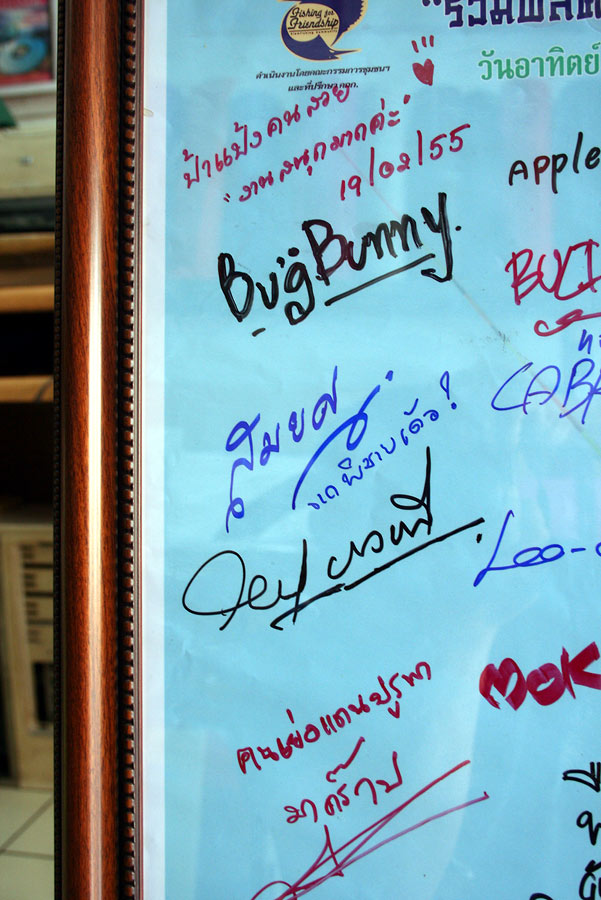 Fishing for
Friendship
"รวมพลค
ดำเนินงานโดยคณะกรรมการชุมชนฯ
และที่ปรึกษา
วันอาทิตย์
ป้าแป้งคนสวย
"งานสนุกมากค่ะ"
19/02/55
Apple
BugBunny.
BUCI
CABA
สมยศ
Loo-
คนเย่อแดนบูรพา
มาคร๊าบ
MOK